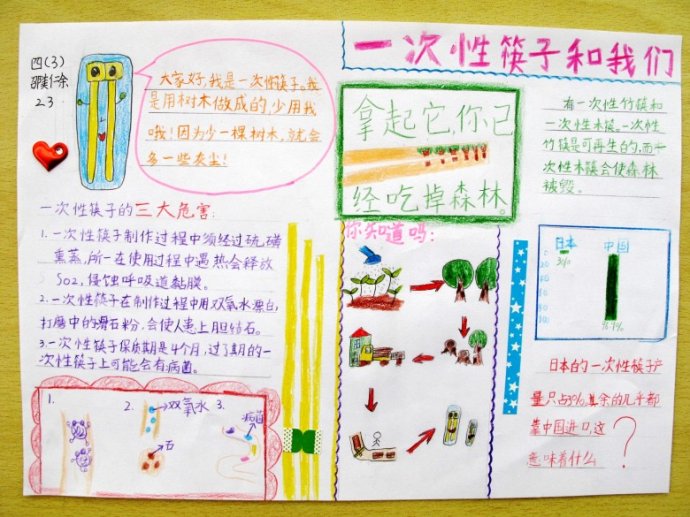 四(3)
23
大家好,我是一次性筷子。我
是用树木做成的,少用我
哦!因为少一棵树木,就会
多一些灰尘!
一次性筷子的三大危害:
1.一次性筷子制作过程中须经过硫磺
熏蒸,所一在使用过程中遇热会释放
SO2,侵蚀呼吸道黏膜。
2.一次性筷子在制作过程中用双氧水漂白,
打磨中的滑石粉,会使人患上胆结石。
3.一次性筷子保质期是4个月,过了期的一
次性筷子上可能会有病菌。
1.
2.
双氧水
3.
病菌
石
一次性筷子和我们
拿起它,你已
经吃掉森林
你知道吗:
有一次性竹筷和
一次性木筷。一次性
竹筷是可再生的,而一
次性木筷会使森林
被毁。
日本
中国
3%
97%
日本的一次性筷子产
量只占3%,其余的几乎都
靠中国进口,这
意味着什么?